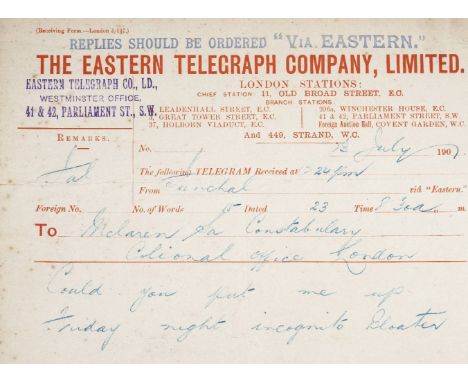 (Receiving Form—London
REPLIES SHOULD BE ORDERED "VIA EASTERN."
THE EASTERN TELEGRAPH COMPANY, LIMITED.
EASTERN TELEGRAPH CO., LD.,
WESTMINSTER OFFICE,
41 & 42, PARLIAMENT ST., S.W.
LONDON STATIONS:
CHIEF STATION: 11, OLD BROAD STREET, E.C.
BRANCH STATIONS
LEADENHALL STREET, E.C.
GREAT TOWER STREET, E.C.
37, HOLBORN VIADUCT, E.C.
206a, WINCHESTER HOUSE, E.C.
41 & 42, PARLIAMENT STREET, S.W.
Foreign Auction Hall, COVENT GARDEN, W.C.
And 449, STRAND, W.C.
REMARKS.
No. 23 July 190
The following TELEGRAM Received at 24 pm
From Funchal via "Eastern."
Foreign No. No. of Words Dated 23 Time 8 30a m
To McLaren Sa Constabulary
Colional office London
Could you put me up
Friday night incognito Bloater